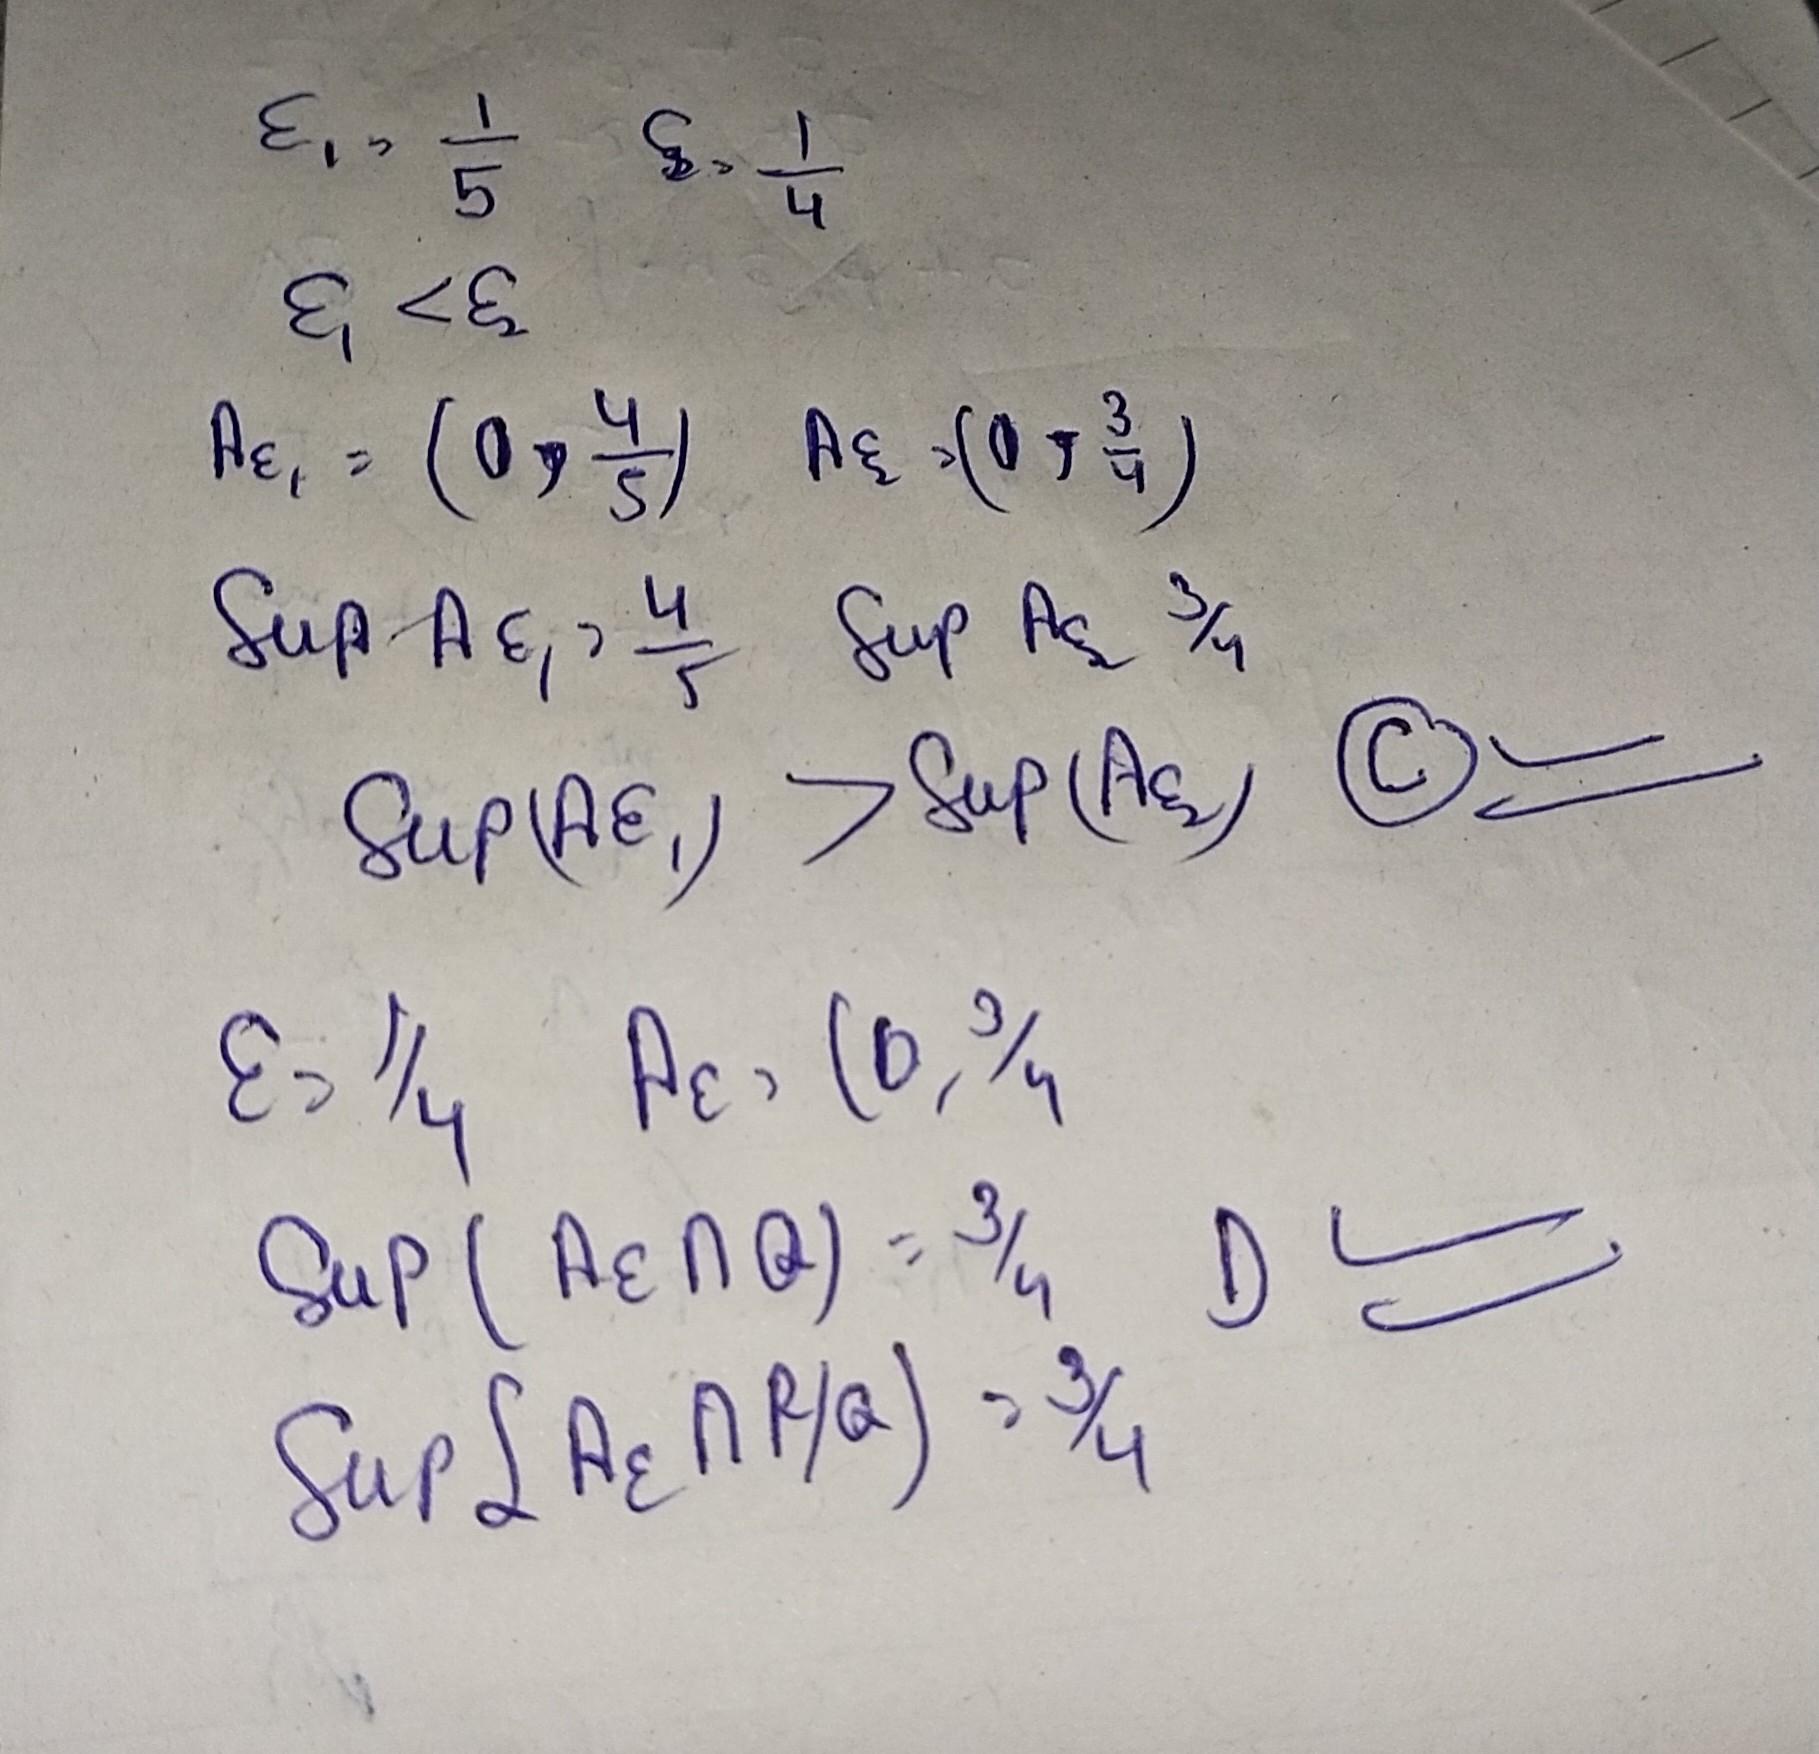 ε₁ = 1/5 ε₂ = 1/4
ε₁ < ε₂
Aε₁ = (0, 4/5) Aε₂ = (0, 3/4)
Sup Aε₁ = 4/5 Sup Aε₂ 3/4
Sup(Aε₁) > Sup(Aε₂) C
ε = 1/4 Aε = (0, 3/4
Sup(Aε ∩ Q) = 3/4 D
Sup{Aε ∩ R/Q) = 3/4